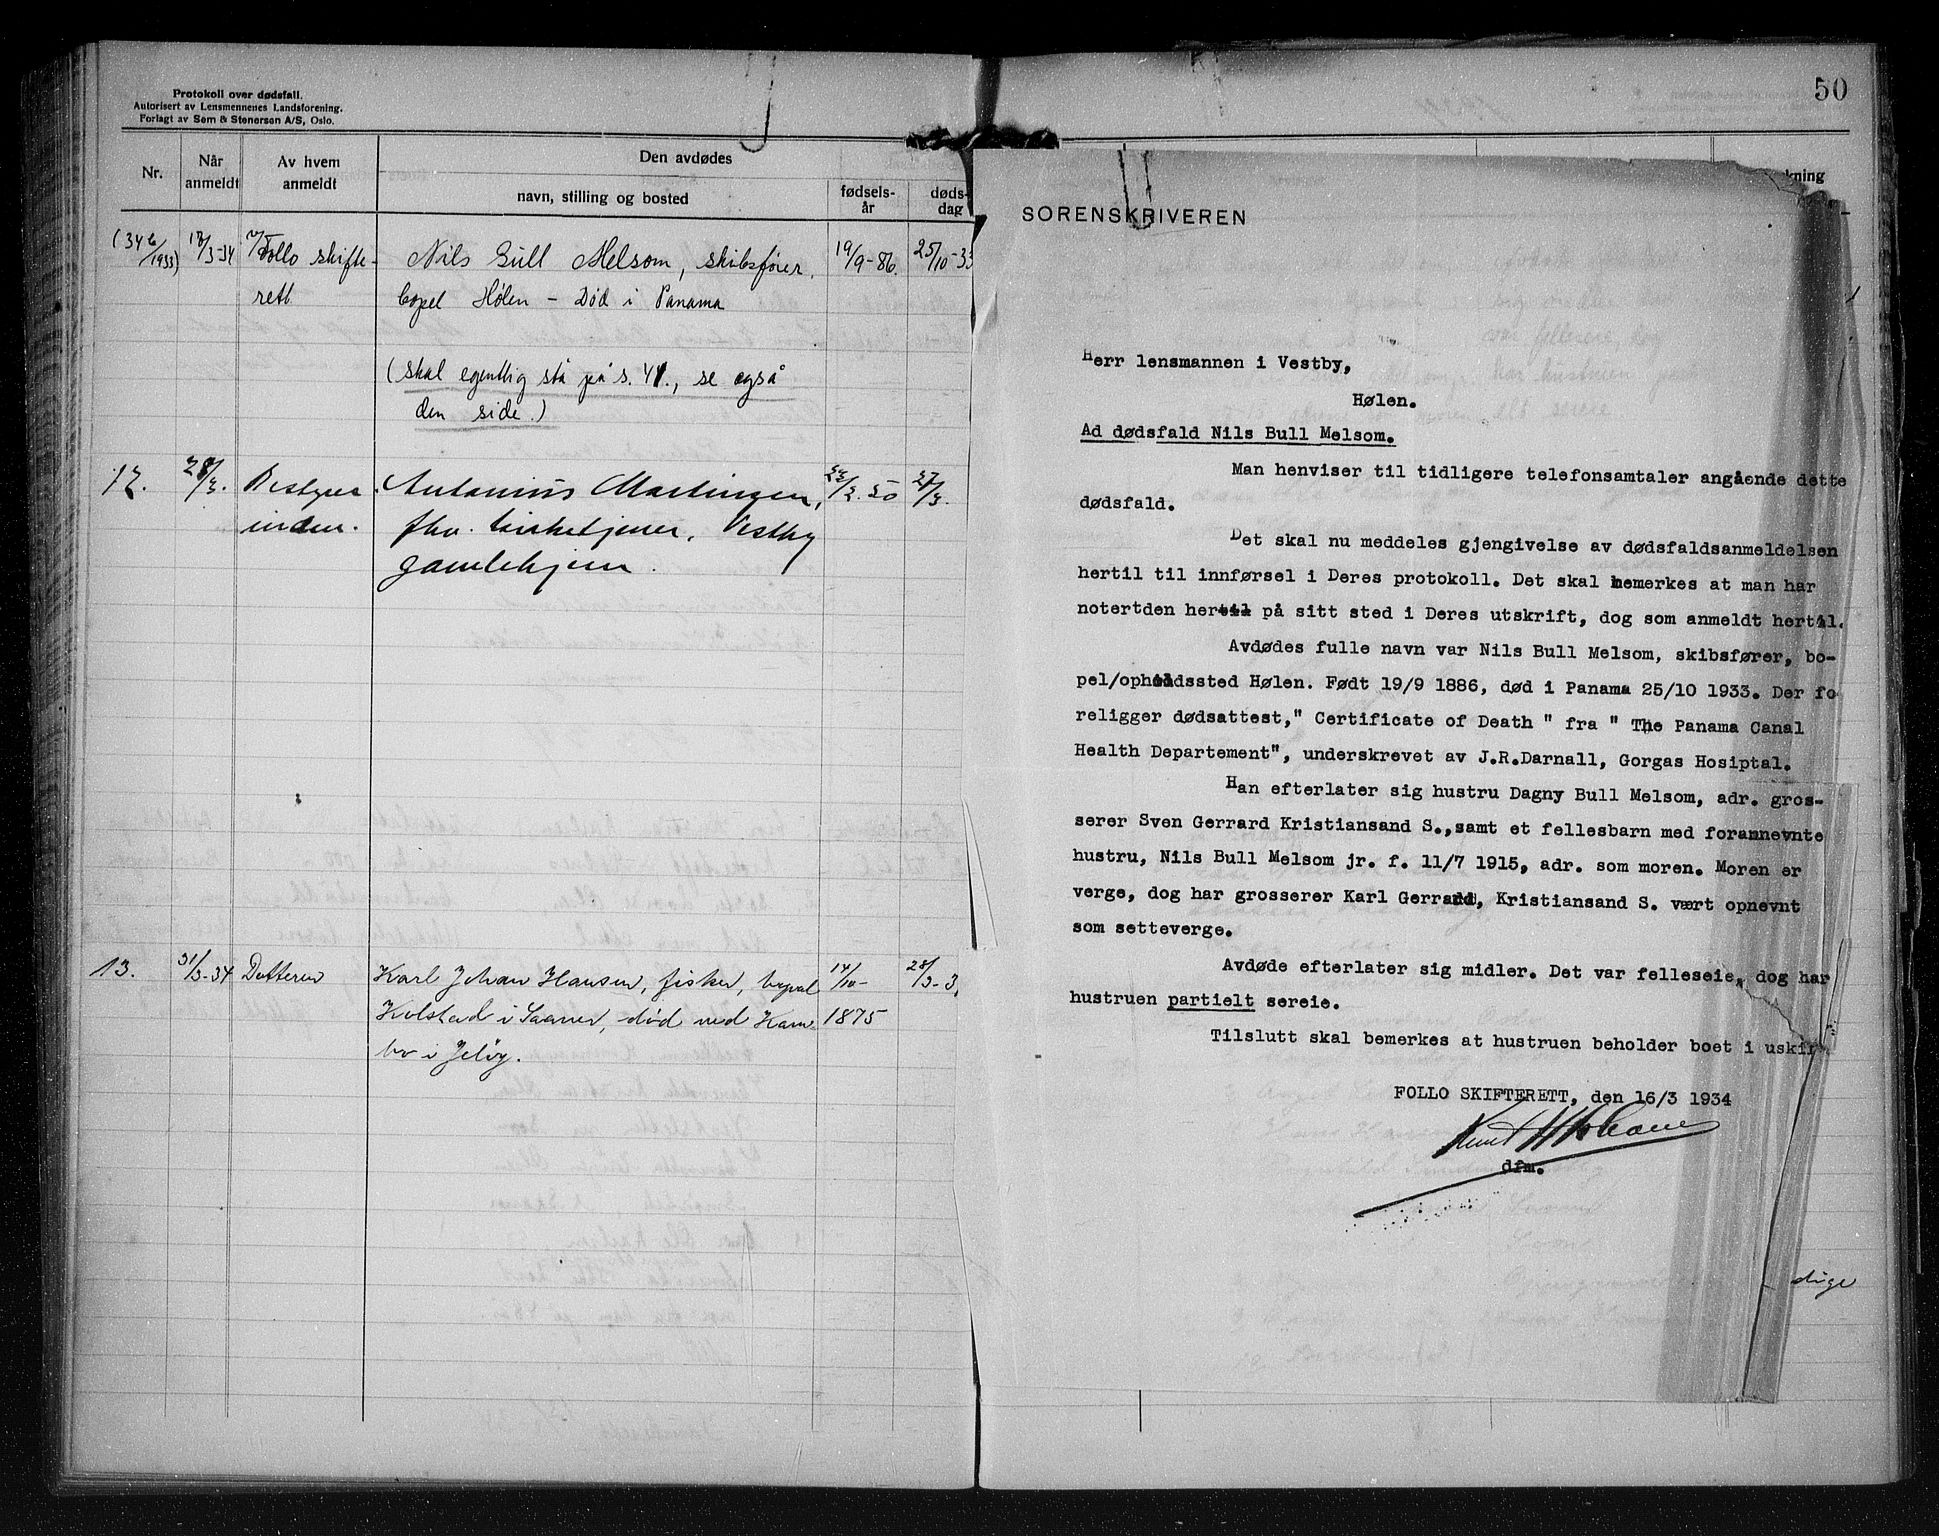 Protokoll over dødsfall.
Autorisert av Lensmennenes Landsforening.
Forlagt av Sem & Stenersen A/S, Oslo.
Nr.
Når anmeldt
Av hvem anmeldt
Den avdødes
navn, stilling og bosted
fødsels-år
døds-dag
(34b/1933) 17/3-34 Follo skifte- Nils Bull Melsom, skibsfører, 19/9-86. 25/10-33
rett bopel Hølen - Død i Panama
(skal egentlig stå på s. 41., se også
den side.)
12. 28/3. Bestyrer Antonius Martinsen, 22/2.50 27/3.
inden. fhv. kirketjener, Vestby
gamlehjem.
13. 31/3-34 Datteren Karl Johan Hansen, fisker, bopel 14/10- 28/3-3
Kolstad i Saaner, død ved Kam- 1875
bo i Jeløy.
50
kning
SORENSKRIVEREN
Herr lensmannen i Vestby,
Hølen.
Ad dødsfald Nils Bull Melsom.
Man henviser til tidligere telefonsamtaler angående dette
dødsfald.
Det skal nu meddeles gjengivelse av dødsfaldsanmeldelsen
hertil til innførsel i Deres protokoll. Det skal bemerkes at man har
notertden hertil på sitt sted i Deres utskrift, dog som anmeldt hertil.
Avdødes fulle navn var Nils Bull Melsom, skibsfører, bo-
pel/opholdssted Hølen. Født 19/9 1886, død i Panama 25/10 1933. Der fo-
religger dødsattest," Certificate of Death " fra " The Panama Canal
Health Departement", underskrevet av J.R.Darnall, Gorgas Hosiptal.
Han efterlater sig hustru Dagny Bull Melsom, adr. gros-
serer Sven Gerrard Kristiansand S., samt et fellesbarn med forannevnte
hustru, Nils Bull Melsom jr. f. 11/7 1915, adr. som moren. Moren er
verge, dog har grosserer Karl Gerrard, Kristiansand S. vært opnevnt
som setteverge.
Avdøde efterlater sig midler. Det var felleseie, dog har
hustruen partielt sereie.
Tilslutt skal bemerkes at hustruen beholder boet i uskif
FOLLO SKIFTERETT, den 16/3 1934
dfm.
dige